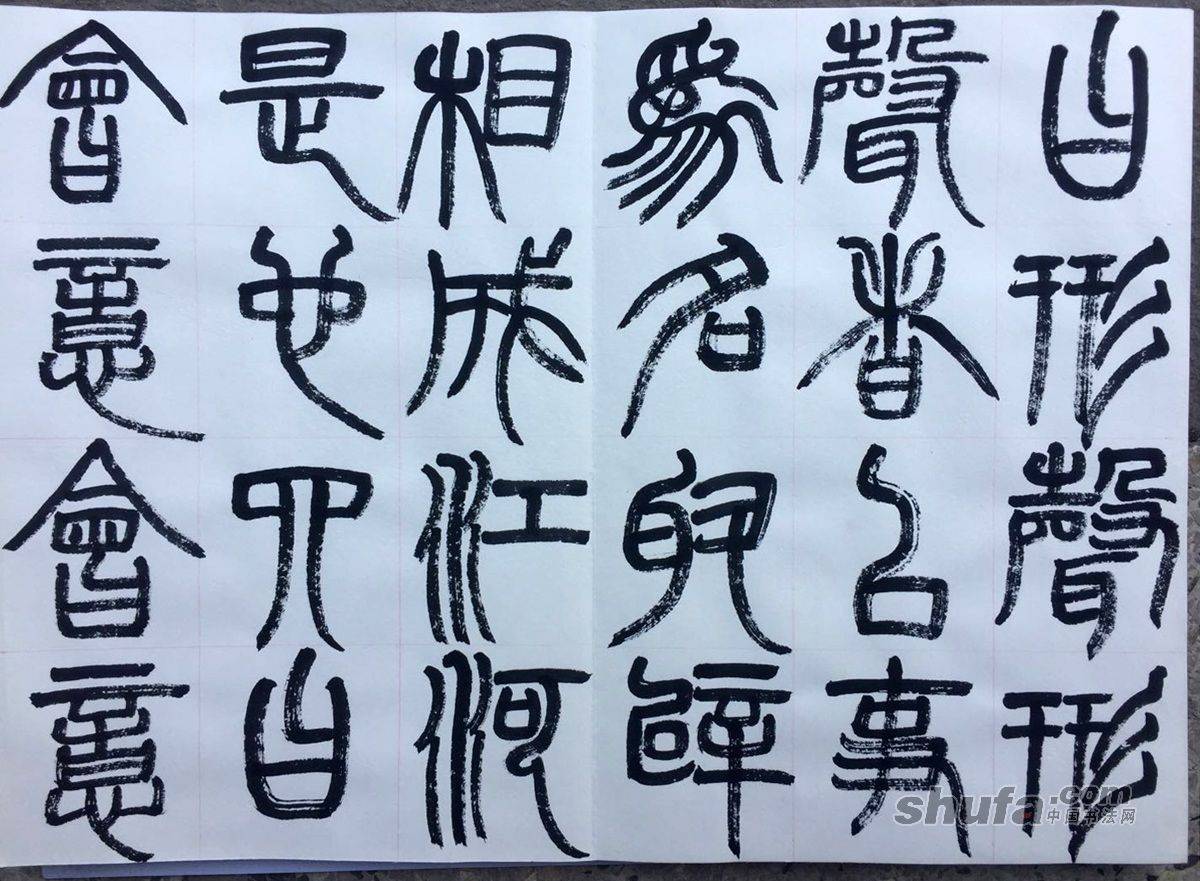 曰形聲形
聲者以事
爲名取譬
相成江河
是也四曰
會意會意
shufa.com
中国书法网